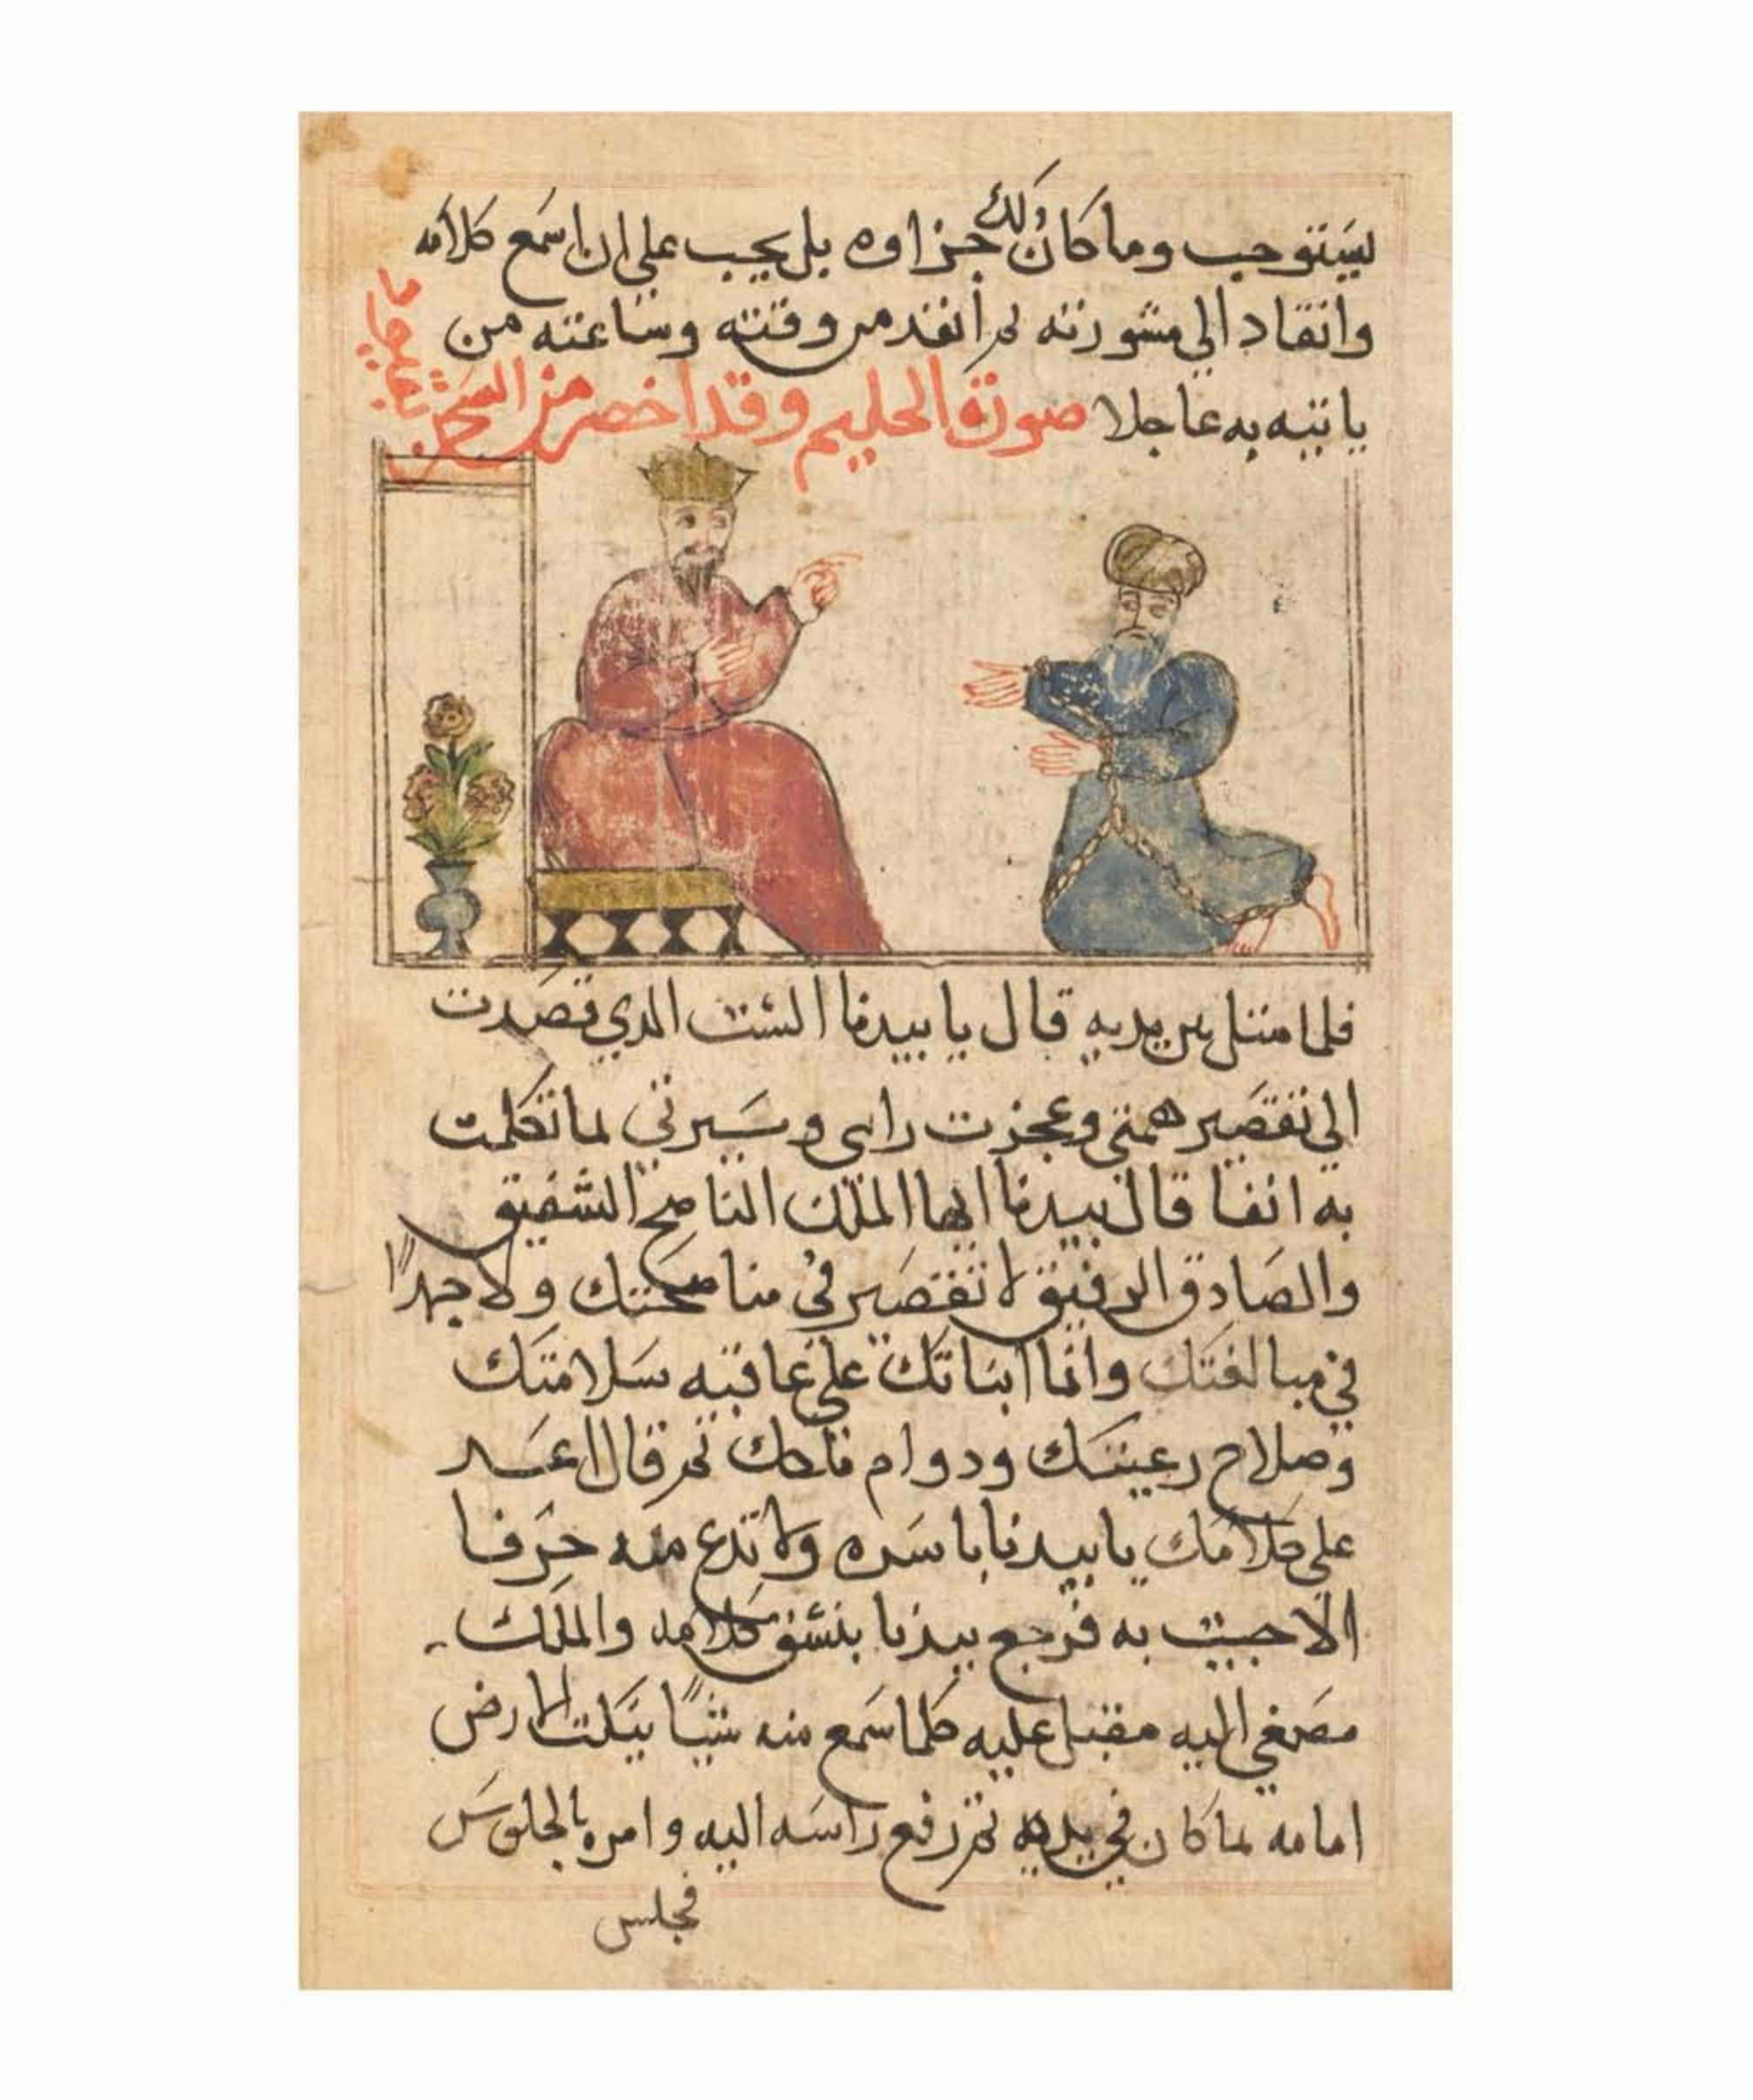 ليستوجب وما كان ذلك جزاوه بل يجب علي ان اسمع كلامه
وانقاد الي مشورته ثم انفد من وقته وساعته من
ياتيه به عاجلا صورة الحليم وقد احضر من السجن
فلما امتثل بين يديه قال يا بيدبا الست الدي قصدت
الي تقصير همتي وعجزت رايي وسيرتي لما تكلمت
به انفا قال بيدبا ايها الملك الناصح الشفيق
والصادق الرفيق لا تقصير في مناصحتك ولا جهدًا
في مبالغتك وانما انباتك علي عاقبه سلامتك
وصلاح رعيتك ودوام ملكك ثم قال اعد
علي كلامك يا بيدبا باسره ولا تدع منه حرفا
الا جيت به فرجع بيدبا ينسق كلامه والملك
مصغي اليه مقبل عليه كلما سمع منه شيًا ينكت الارض
امامه بما كان في يديه ثم رفع راسه اليه وامره بالجلوس
فجلس